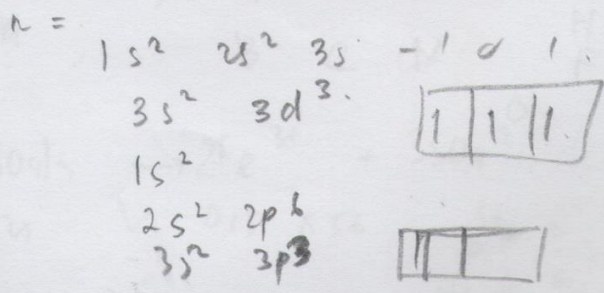 n =
1s² 2s² 3s -1 0 1.
3s² 3d³.
1 1 1.
1s²
2s² 2p⁶
3s² 3p³